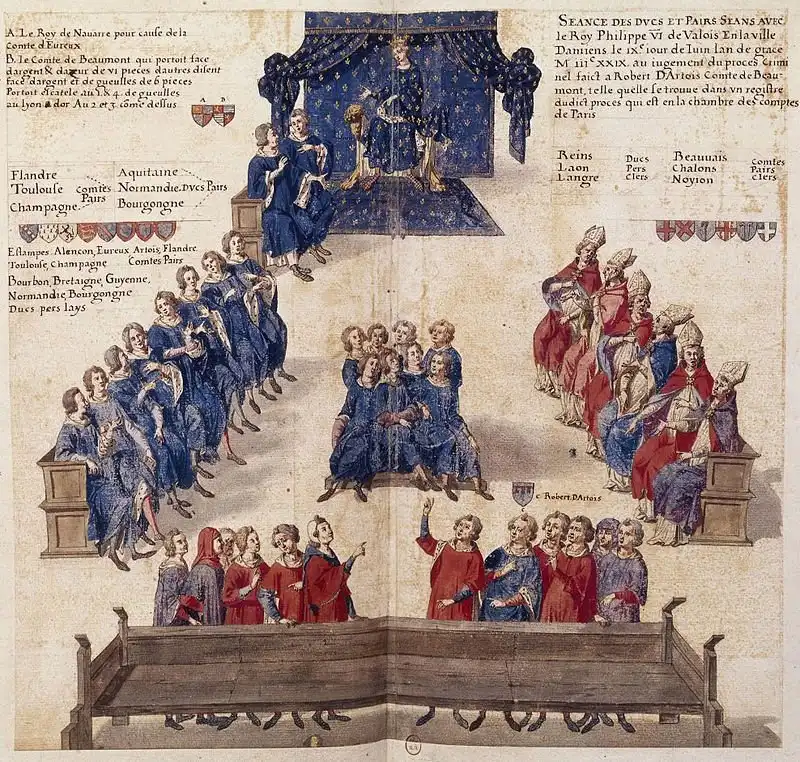 A. Le Roy de Nauarre pour cause de la
Comté d'Eureux
B. le Comte de Beaumont qui portoit face
dargent & dazur de VI pieces dautres disent
face dargent et de gueulles de 6 pieces
Portoit escatele au 1. & 4. de gueulles
au lyon dor Au 2 et 3. come dessus
A B
SEANCE DES DVCS ET PAIRS SEANS AVEC
le Roy Philippe VI de Valois En la ville
Damiens le IXe iour de Iuin lan de grace
M IIIc XXIX. au iugement du proces Crimi
nel faict a Robert D'Artois Comte de Beau-
mont, telle quelle se trouue dans vn registre
dudict proces qui est en la chambre des comptes
de Paris
Flandre
Toulouse
Champagne
Comtes
Pairs
Aquitaine
Normandie
Bourgongne
Ducs Pairs
Reins
Laon
Langre
Ducs
Pers
Clers
Beauuais
Chalons
Noyion
Comtes
Pairs
Clers
Estampes. Alencon, Eureux Artois, Flandre
Toulouse, Champagne Comtes Pairs
Bourbon, Bretaigne, Guyenne,
Normandie, Bourgongne
Ducs pers lays
C Robert. D'Artois